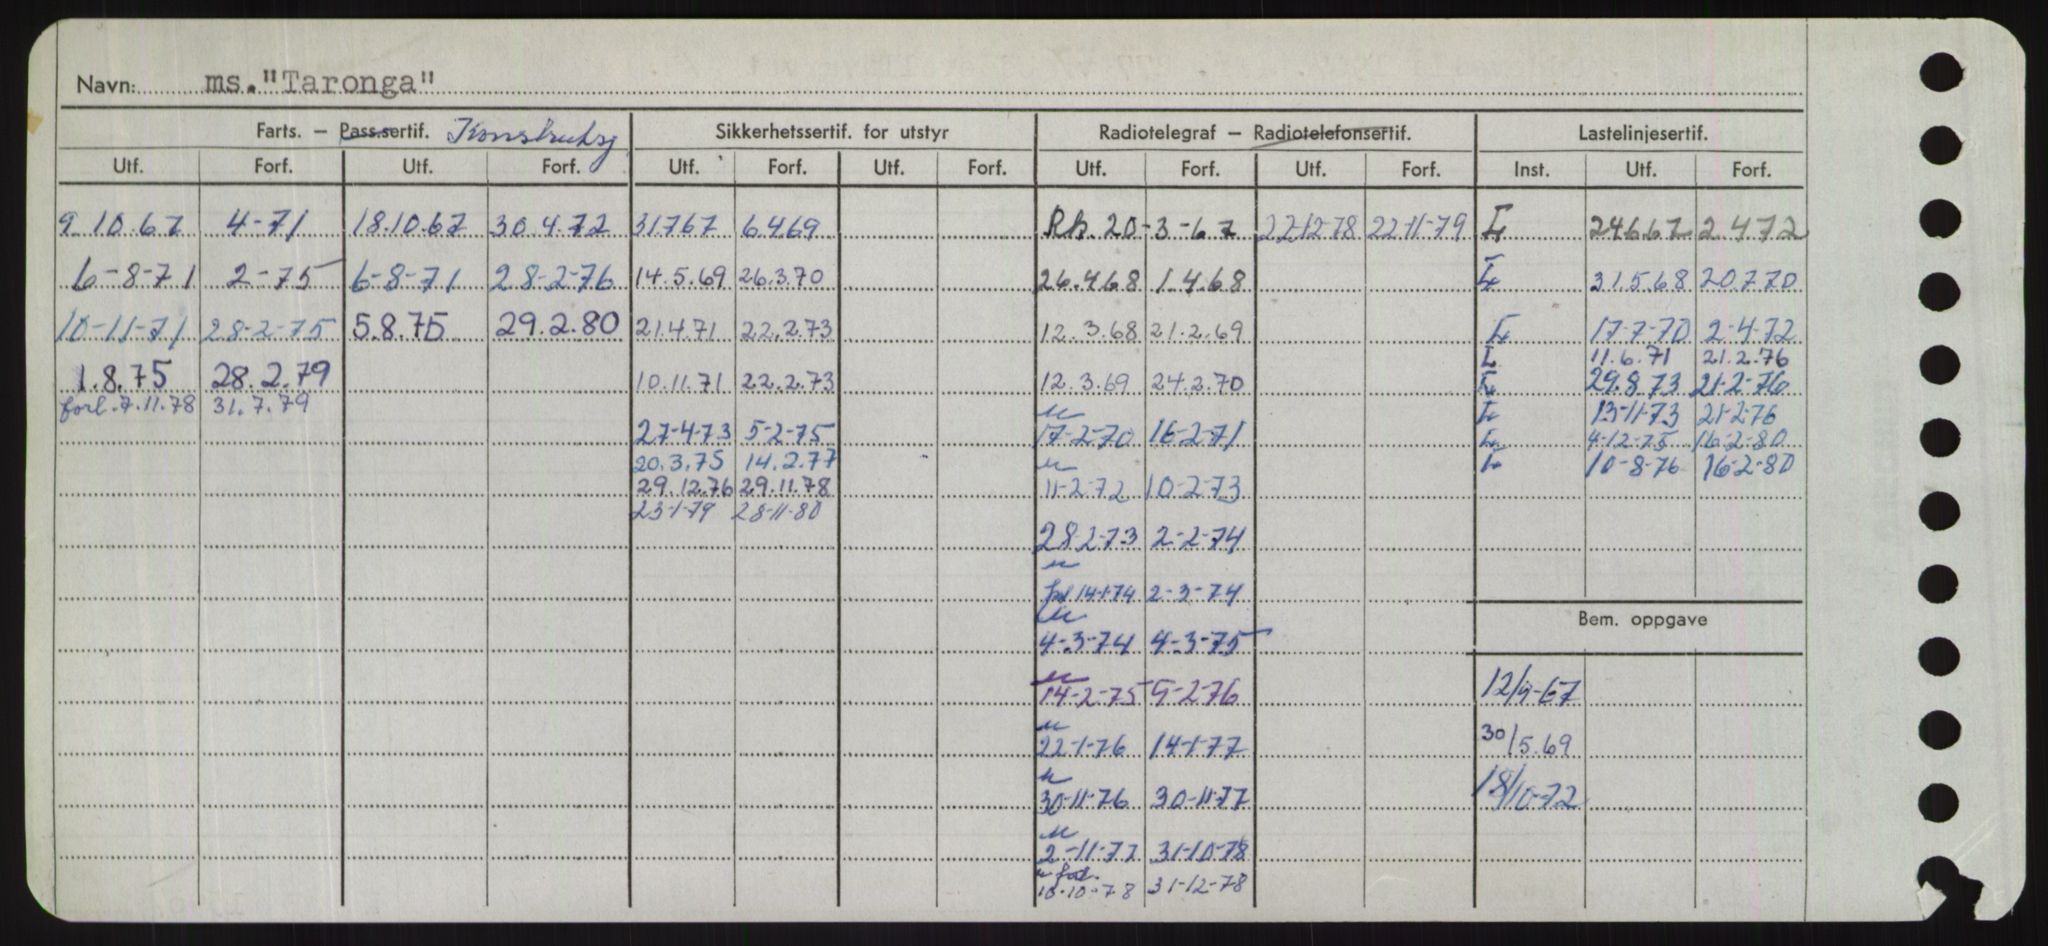 Navn: ms. "Taronga"
Farts. – Pass.sertif. Konstruksj Sikkerhetssertif. for utstyr Radiotelegraf – Radiotelefonsertif. Lastelinjesertif.
Utf. Forf. Utf. Forf. Utf. Forf. Utf. Forf. Utf. Forf. Utf. Forf. Inst. Utf. Forf.
9.10.67 4-71 18.10.67 30.4.72 31767 6.4.69 Rk. 20-3-67 22-12-78 22-11-79 Ł 24667 2.472
6-8-71 2-75 6-8-71 28-2-76 14.5.69 26.3.70 26.4.68 1.4.68 Ł 31.5.68 20.7.70
10-11-71 28-2-75 5.8.75 29.2.80 21.4.71 22.2.73 12.3.68 21.2.69 Ł 17-7-70 2-4-72
Ł 11.6.71 21.2.76
1.8.75 28.2.79 10.11.71 22.2.73 12.3.69 24.2.70 Ł 29.8.73 21-2-76
forl. 7.11.78 31.7.79 Ł 13-11-73 21-2-76
27-4-73 5-2-75 17-2-70 16-2-71 Ł 4-12-75 16-2-80
20.3.75 14.2.77 Ł 10-8-76 16-2-80
29.12.76 29.11.78 11-2-72 10-2-73
23-1-79 28-11-80
28273 2-2-74
14-1-74 2-3-74
Bem. oppgave
4-3-74 4-3-75
14-2-75 9-2-76 12/9-67
22-1-76 14-1-77 30/5.69
30-11-76 30-11-77 18/10-72
2-11-77 31-10-78
10-10-78 31-12-78